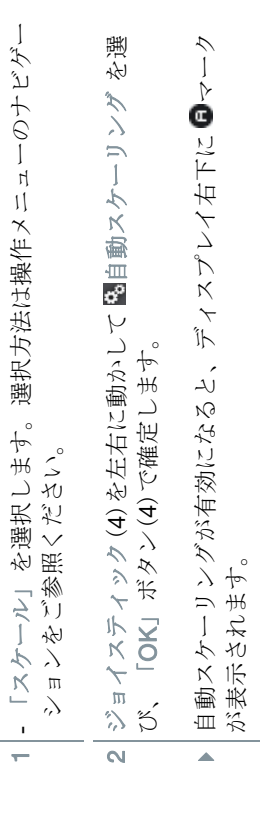 1 - 「スケール」を選択します。選択方法は操作メニューのナビゲー
ションをご参照ください。
2 ジョイスティック(4)を左右に動かして 自動スケーリング を選
び、「OK」ボタン(4)で確定します。
自動スケーリングが有効になると、ディスプレイ右下に A マーク
が表示されます。